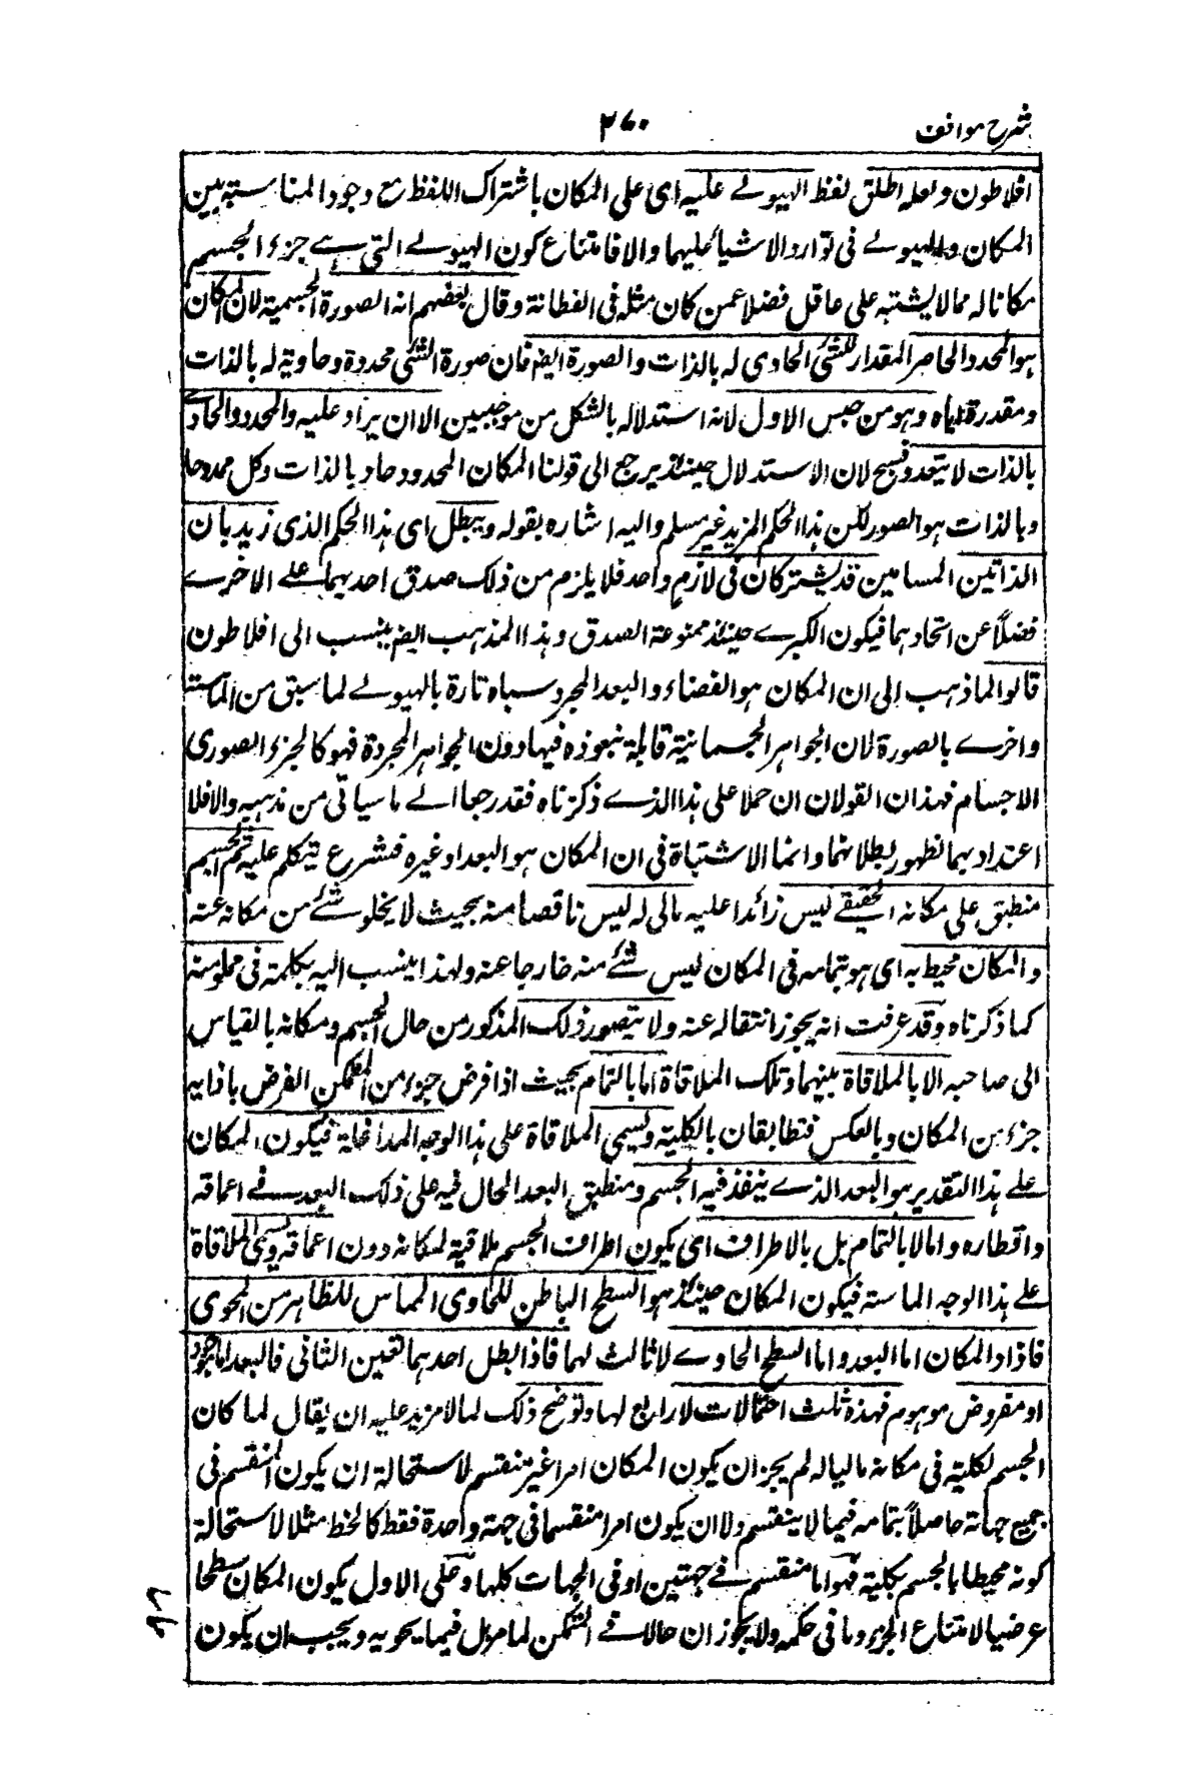 شرح مواقف
٣٧٠
افلاطون ولعله اطلق لفظ الهيولے عليه اى على المكان باشتراك اللفظ مع وجود المناسبة بين
المكان والهيولے فى توارد الاشياء عليهما والا فامتناع كون الهيولے التى هے جزء الجسم
مكانا له مما لا يشتبه على عاقل فضلا عمن كان مثله فى الفطانة وقال بعضهم انه الصورة الجسمية لان المكان
هو المحدد الحاصر المقدار للشئ الحاوى له بالذات والصورة ايضم فان صورة الشئ محددة وحاوية له بالذات
ومقدرة اياه وهو من جنس الاول لانه استدلال بالشكل من موجبتين الا ان يزاد عليه والمحدد والحاوے
بالذات لا يتعدد فيصح لان الاستدلال حينئذ يرجع الى قولنا المكان المحدود حاو بالذات وكل محدد حا
و بالذات هو الصور لكن هذا الحكم المزيد غير مسلم واليه اشاره بقوله ويبطل اى هذا الحكم الذى زيد بان
الذاتين المسامين قد يشتركان فى لازم واحد فلا يلزم من ذلك صدق احديهما علے الاخرے
فضلاً عن اتحادهما فيكون الكبرے حينئذ ممنوعة الصدق وهذا المذهب ايضم ينسب الى افلاطون
قالوا لما ذهب الى ان المكان هو الفضاء والبعد المجرد سماه تارة بالهيولے لما سبق من المناسبة
واخرے بالصورة لان الجواهر الجسمانية قابلة بنفوذه فيها دون الجواهر المجردة فهو كالجزء الصورى
الاجسام فهذان القولان ان حملا على هذا الذے ذكرناه فقد رجعا الے ما سياتى من مذهبه والا فلا
اعتداد بهما لظهور بطلانهما وانما الاشتباة فى ان المكان هو البعد او غيره فشرع يتكلم عليه ثم الجسم
منطبق على مكانه الحقيقے ليس زائدا عليه مالى له ليس ناقصا منه بحيث لا يخلو شئے من مكانه عنه
والمكان محيط به اى هو بتمامه فى المكان ليس شئے منه خارجا عنه ولهذا ينسب اليه بكلمة فى مملو منه
كما ذكرناه وقد عرفت انه يجوز انتقاله عنه ولا يتصور ذلك المذكور من حال الجسم ومكانه بالقياس
الى صاحبه الا بالملاقاة بينهما وتلك الملاقاة اما بالتمام بحيث اذا فرض جزء من المتمكن انفرض باذايه
جزء من المكان وبالعكس فتطابقان بالكلية ويسمى الملاقاة على هذا الوجه المداخلة فيكون المكان
علے هذا التقدير هو البعد الذے ينفذ فيه الجسم ومنطبق البعد الحال فيه على ذلك البعد فے اعماقه
واقطاره واما لا بالتمام بل بالاطراف اى يكون اطراف الجسم ملاقية لمكانه دون اعماقه ويسمى الملاقاة
علے هذا الوجه الماسته فيكون المكان حينئذ هو السطح الباطن للحاوى المماس للظاهر من المحوى
فاذا والمكان اما البعد واما السطح الحاوے لا ثالث لهما فاذا بطل احدهما تعين الثانى فالبعد اما موجود
او مفروض موهوم فهذه ثلث احتمالات لا رابع لها وتوضح ذلك لما لا مزيد عليه ان يقال لما كان
الجسم لكليته فى مكانه ماليا له لم يجز ان يكون المكان امرا غير منقسم لاستحالة ان يكون المنقسم فى
جميع جهاته حاصلاً بتمامه فيما لا ينقسم ولا ان يكون امرا منقسما فى جهة واحدة فقط كالخط مثلا لاستحالة
كونه محيطا بالجسم بكليته فهو اما منقسم فے جهتين او فى الجهات كلها وعلى الاول يكون المكان سطحا
عرضيا لامتناع الجزء وما فى حكمه ولا يجوز ان حالا فے المتمكن لما مر بل فيما يحويه ويجب ان يكون